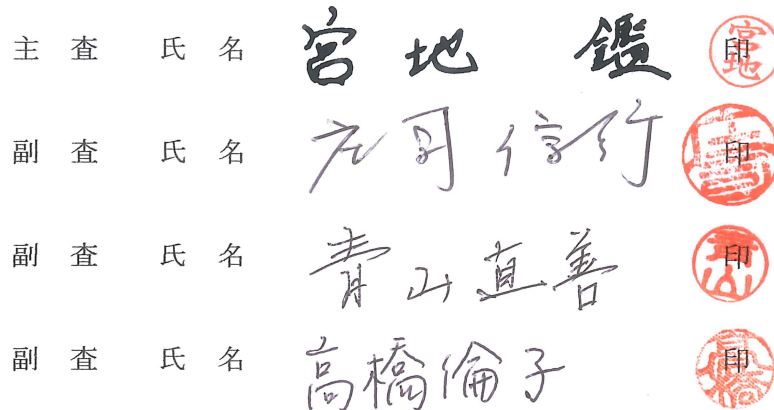 主査 氏名 宮地 鑑 印
副査 氏名 庄司 信行 印
副査 氏名 青山 直善 印
副査 氏名 高橋 倫子 印